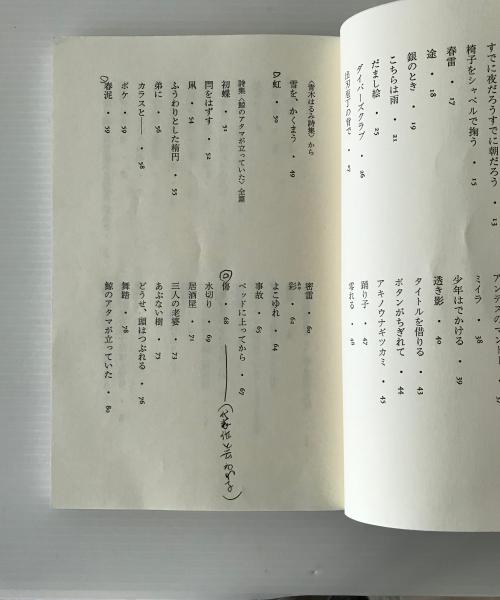 すでに夜だろうすでに朝だろう・13
椅子をシャベルで掬う・15
春雷・17
途・18
銀のとき・19
こちらは雨・21
だまし絵・25
ダイバーズクラブ・26
ミイラ・38
少年はでかける・39
透き影・40
タイトルを借りる・43
ボタンがちぎれて・44
アキノウナギツカミ・45
踊り子・47
零れる・48
〈青木はるみ詩集〉から
雪を、かくまう・49
虹・50
詩集〈鯨のアタマが立っていた〉全篇
初蝶・51
閂をはずす・52
凪・54
ふうわりとした楕円・55
弟に・56
カラスと――・58
ボケ・59
春泥・59
密雷・60
彩・62
よこゆれ・64
事故・65
ベッドに上ってから・67
傷・68
水切り・69
居酒屋・71
三人の老婆・73
あぶない樹・73
どうせ、頭はつぶれる・76
舞踏・78
鯨のアタマが立っていた・80